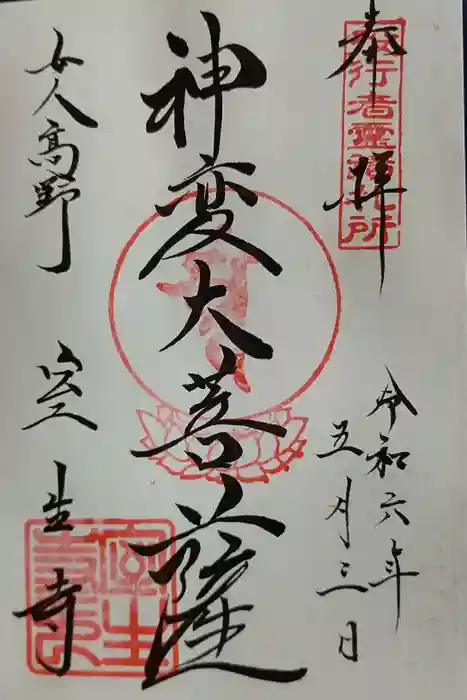 奉拝
役行者霊蹟札所
令和六年
五月三日
神変大菩薩
女人高野 室生寺